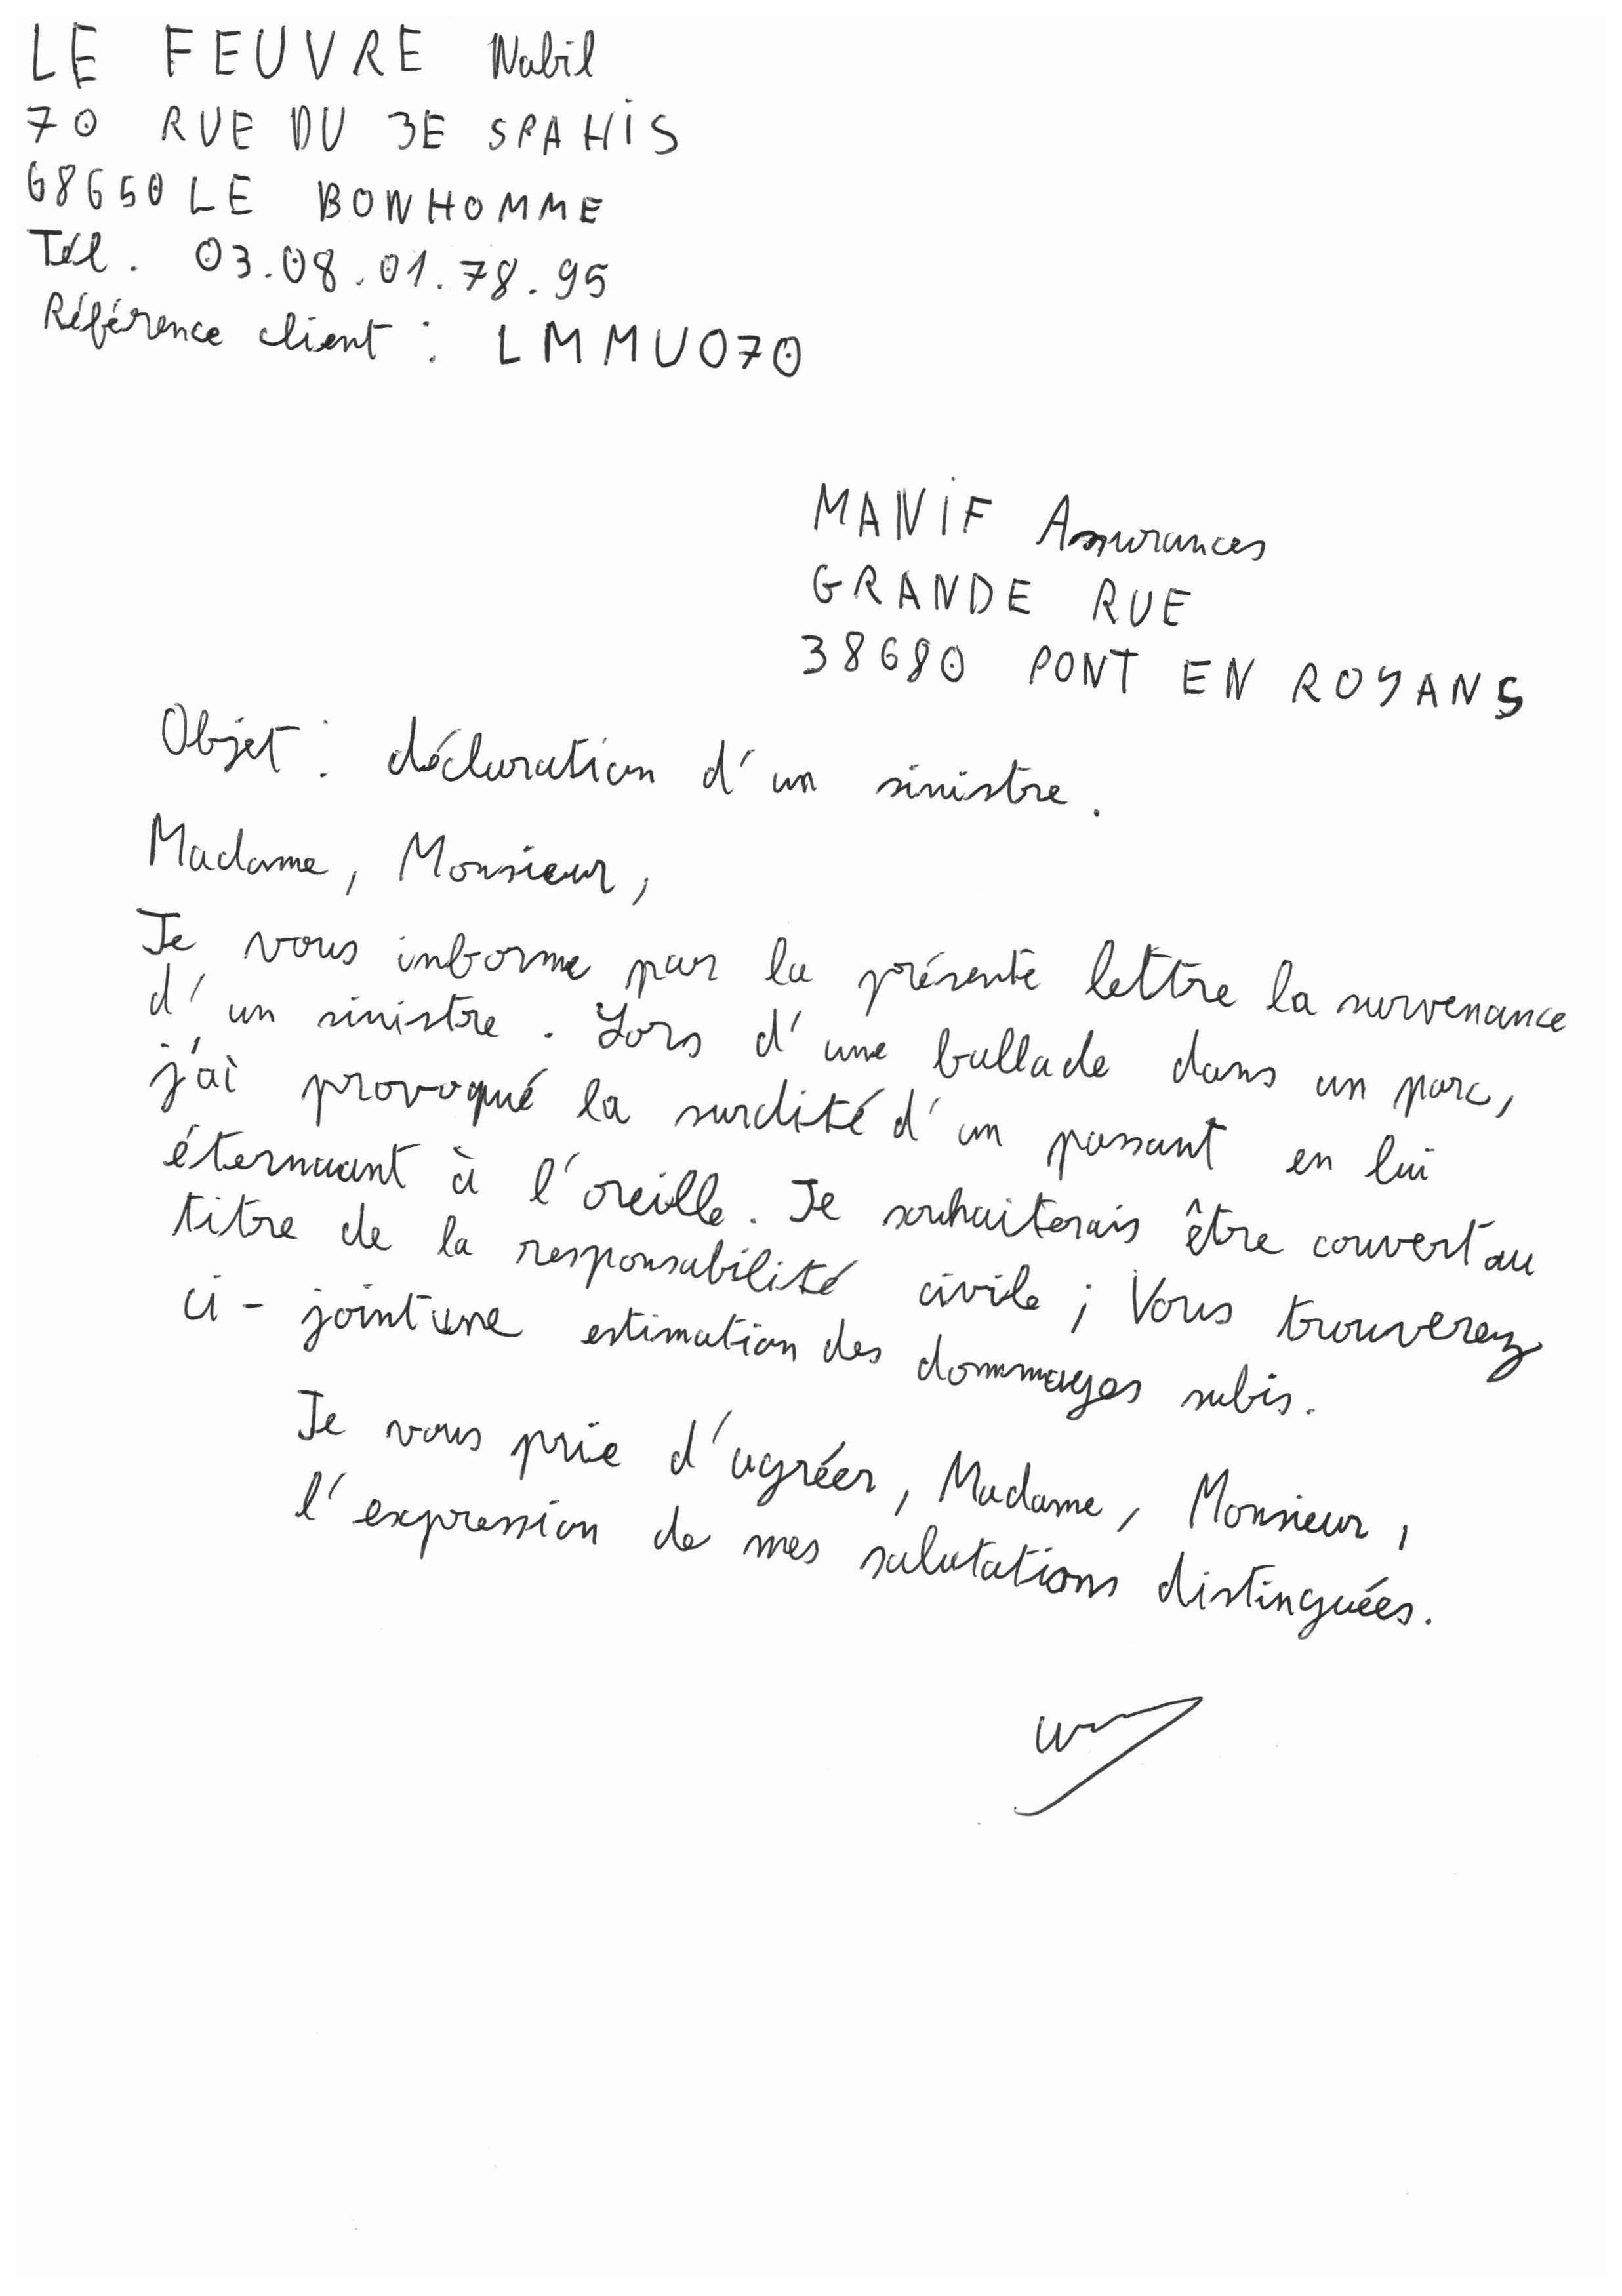 LE FEUVRE Nabil
70 RUE DU 3E SPAHIS
68650 LE BONHOMME
Tél. 03.08.01.78.95
Référence client : LMMUO70
MANIF Assurances
GRANDE RUE
38680 PONT EN ROYANS
Objet : déclaration d'un sinistre.
Madame, Monsieur,
Je vous informe par la présente lettre la survenance
d'un sinistre. Lors d'une ballade dans un parc,
j'ai provoqué la surdité d'un passant en lui
éternuant à l'oreille. Je souhaiterais être couvert au
titre de la responsabilité civile ; Vous trouverez
ci-joint une estimation des dommages subis.
Je vous prie d'agréer, Madame, Monsieur,
l'expression de mes salutations distinguées.